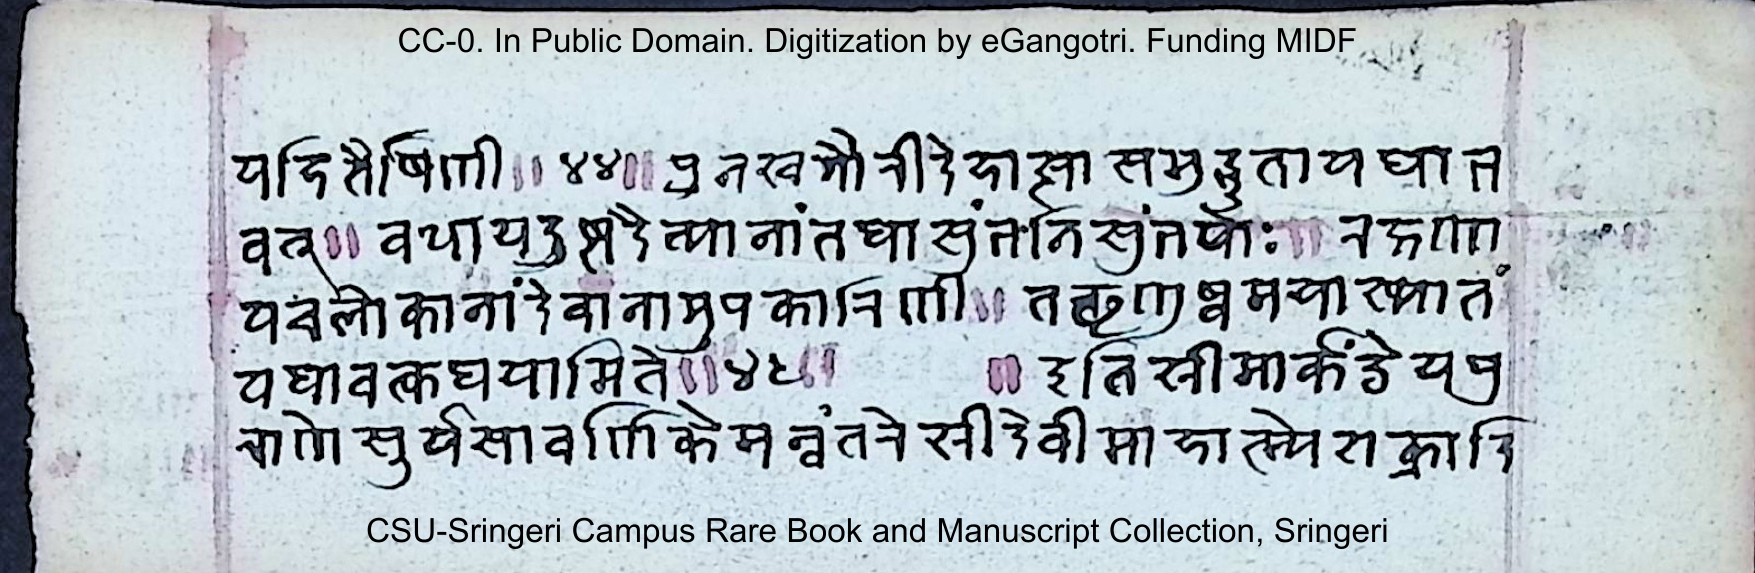 CC-0. In Public Domain. Digitization by eGangotri. Funding MIDF
यहितैषिणी॥ ४४॥ पुनश्च गौरीदेहात्सा समुद्भुता यथा भ
वत्॥ वधाय दुष्टदैत्यानां तथा सुंभनिसुंभयोः॥ रक्षणा
य च लोकानां देवानामुपकारिणी॥ तछृणुष्व मयाख्यातं
यथावत्कथयामि ते॥४५॥ ॥ इति स्री मार्कंडेयपु
राणे सुर्यसावर्णिके मन्वंतरे स्रीदेवीमाहात्म्ये शक्रादि
CSU-Sringeri Campus Rare Book and Manuscript Collection, Sringeri